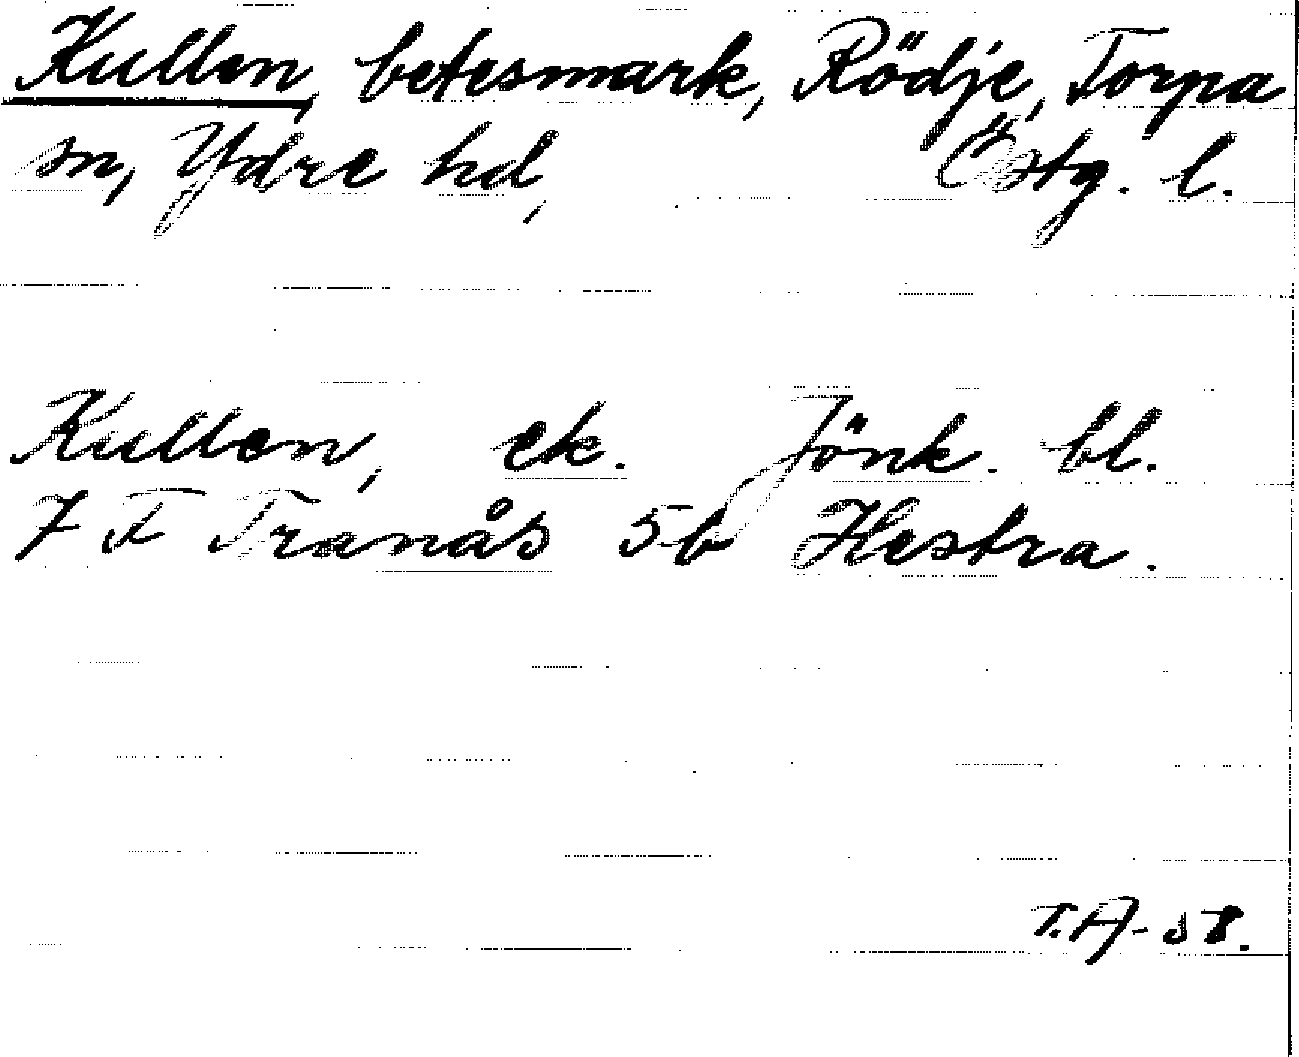 Kullen, betesmark, Rödje, Torpa
sn, Ydre hd, Östg. l.
Kullen, ek. Jönk. bl.
7 F Tranås 5b Hestra.
T.A-58.